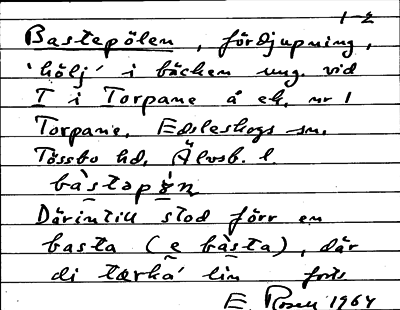 1-2
Bastepölen, fördjupning,
'hölj' i bäcken ung. vid
T i Torpane å ek. nr 1
Torpane, Edsleskogs sn.
Tössbo hd, Älvsb. l.
bàstəpö̀n
Därintill stod förr en
basta (e bàsta), där
di tærka' lin forts
E. Rosell 1964